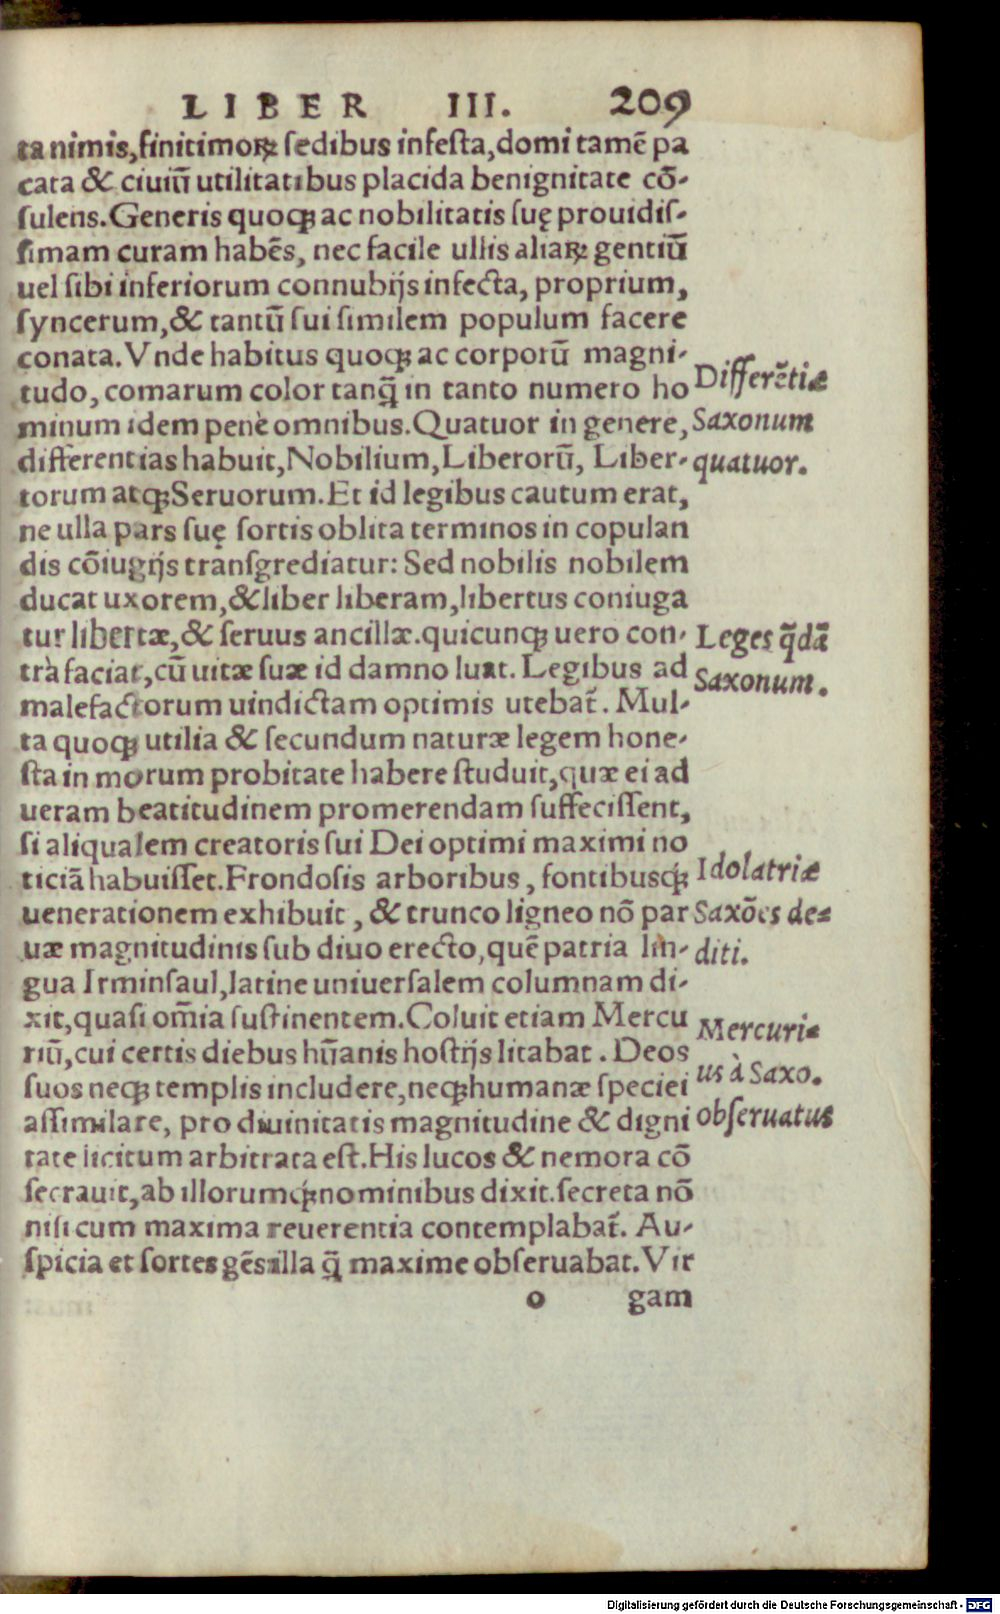 LIBER III. 209
ta nimis, finitimoꝝ sedibus infesta, domi tamē pa
cata & ciuiū utilitatibus placida benignitate cō-
sulens. Generis quoqꝫ ac nobilitatis suę prouidiſ-
ſimam curam habēs, nec facile ullis aliaꝝ gentiū
uel ſibi inferiorum connubijs infecta, proprium,
ſyncerum, & tantū ſui ſimilem populum facere
conata. Vnde habitus quoqꝫ ac corporū magni-
tudo, comarum color tanq̃ in tanto numero ho
minum idem penè omnibus. Quatuor in genere,
differentias habuit, Nobilium, Liberorū, Liber-
torum atqꝫ Seruorum. Et id legibus cautum erat,
ne ulla pars ſuę ſortis oblita terminos in copulan
dis cōiugijs tranſgrediatur: Sed nobilis nobilem
ducat uxorem, & liber liberam, libertus coniuga
tur libertæ, & ſeruus ancillæ. quicunqꝫ uero con-
trà faciat, cū uitæ ſuæ id damno luat. Legibus ad
malefactorum uindictam optimis utebat᷑. Mul-
ta quoqꝫ utilia & ſecundum naturæ legem hone-
ſta in morum probitate habere ſtuduit, quæ ei ad
ueram beatitudinem promerendam ſuffeciſſent,
ſi aliqualem creatoris ſui Dei optimi maximi no
ticiā habuiſſet. Frondoſis arboribus, fontibusqꝫ́
uenerationem exhibuit, & trunco ligneo nō par
uæ magnitudinis ſub diuo erecto, quē patria lin-
gua Irminſaul, latine uniuerſalem columnam di-
xit, quaſi om̄ia ſuſtinentem. Coluit etiam Mercu
riū, cui certis diebus hūanis hoſtijs litabat. Deos
ſuos neqꝫ templis includere, neqꝫ humanæ ſpeciei
aſſimilare, pro diuinitatis magnitudine & digni
tate licitum arbitrata eſt. His lucos & nemora cō
ſecrauit, ab illorumqꝫ́ nominibus dixit. ſecreta nō
niſi cum maxima reuerentia contemplabat᷑. Au-
ſpicia et ſortes gēs illa q̃ maxime obſeruabat. Vir
o gam
Differētiæ
Saxonum
quatuor.
Leges q̃dā
Saxonum.
Idolatriæ
Saxōes de-
diti.
Mercuri-
us à Saxo.
obſeruatus
Digitalisierung gefördert durch die Deutsche Forschungsgemeinschaft - DFG